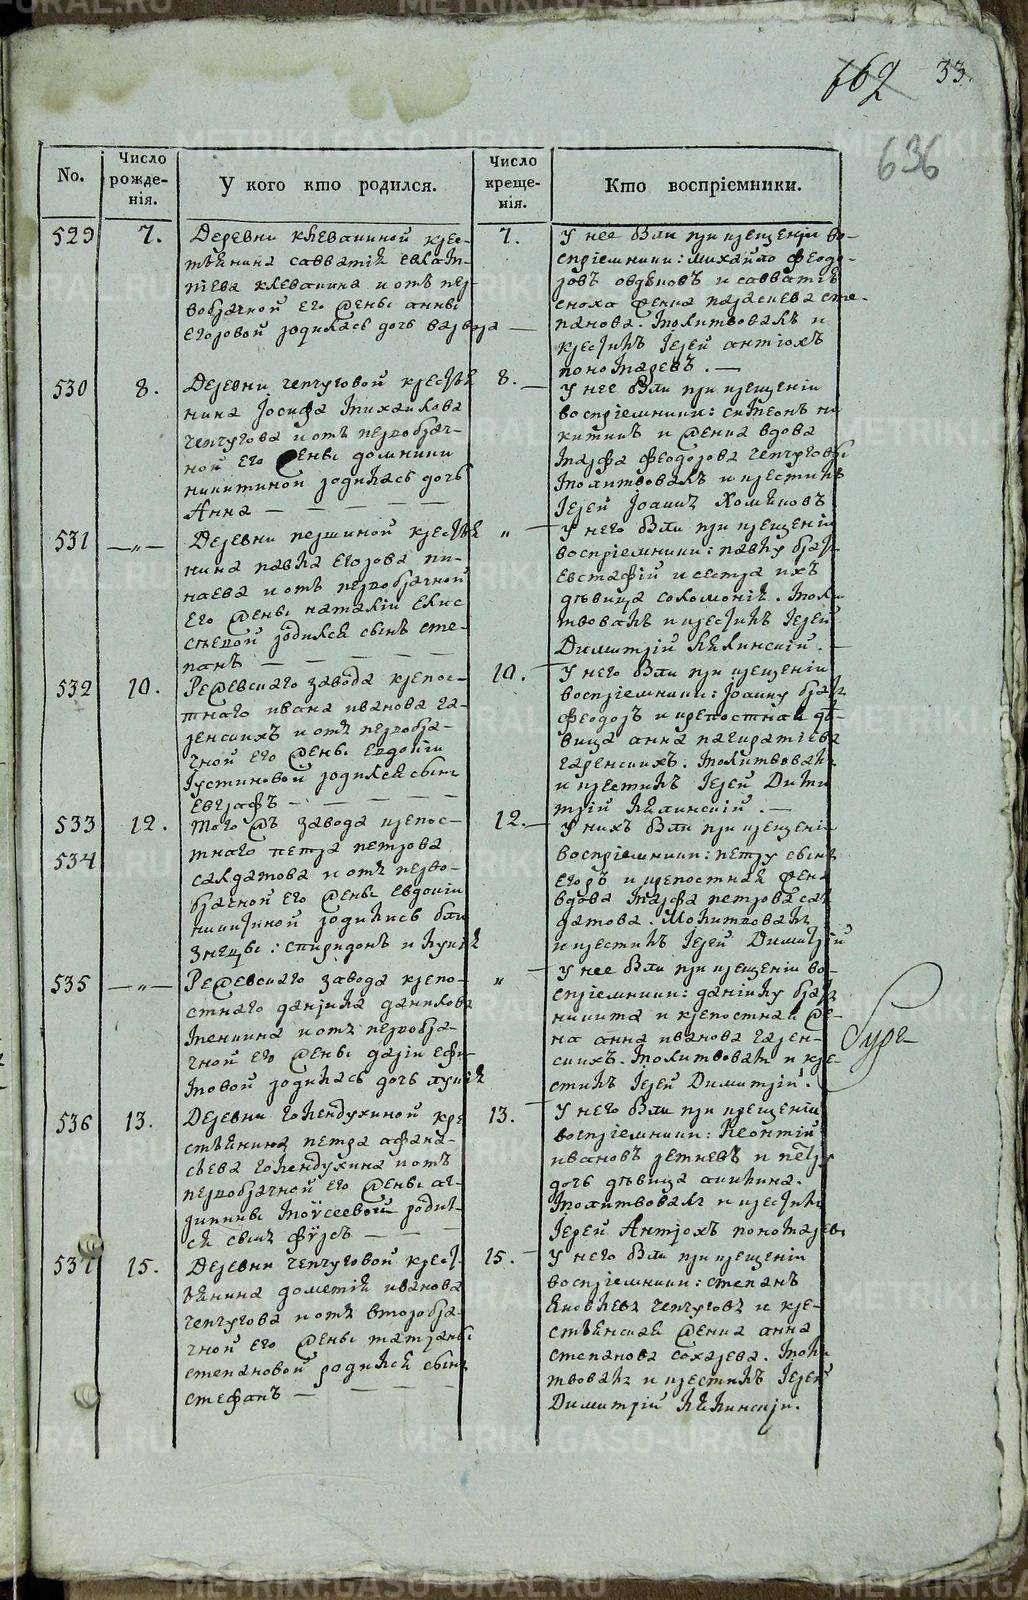 662 33.
636
No.
Число рожде-нія.
У кого кто родился.
Число креще-нія.
Кто воспріемники.
529 7.
Деревни клеваниной крес-
тьянина савватія евлам-
піева клеванина и отъ пер-
вобрачной его жены анны
егоровой родилась дочь варвара
7.
У нее были при крещеніи во-
спріемники: михайло феодо-
ровъ овдѣновъ и савватія
сноха жена параскева сте-
панова. молитвовалъ и
крестилъ Іерей антіохъ
пономаревъ.
530 8.
Деревни чепчуговой крестья
нина Іосифа михаилова
чепчугова и отъ первобрач-
ной его жены домники
никитиной родилась дочь
Анна
8.
У нее были при крещеніи
воспріемники: симеонъ ни
китинъ и женка вдова
марфа феодорова чепчуговы
молитвовалъ и крестилъ
Іерей Іоаннъ Хомяковъ
531 —„—
Деревни першиной крестья
нина павла егорова пи-
наева и отъ первобрачной
его жены наталіи елис
сѣевой родился сынъ сте-
панъ
„
У него были при крещеніи
воспріемники: павлу братъ
евстафій и сестра ихъ
дѣвица соломонія. моли
твовалъ и крестилъ Іерей
Димитрій Кялинскій.
532 10.
Режевскаго завода крепос-
тнаго ивана иванова га-
ренскихъ и отъ первобра-
чной его жены евдокіи
Іустиновой родился сынъ
евграфъ
10.
У него были при крещеніи
воспріемники: Іоанну братъ
феодоръ и крепостная дѣ-
вица анна панкратіева
гаренскихъ. молитвовалъ
и крестилъ Іерей Дими
трій Кялинскій.
533 12.
534
того жъ завода крепос-
тнаго петра петрова
салдатова и отъ перво-
брачной его жены евдокіи
никитиной родились бли
знецы: спиридонъ и лукія
12.
У нихъ были при крещеніи
воспріемники: петру сынъ
егоръ и крепостная жена
вдова марфа петрова сал
датова. Молитвовалъ
и крестилъ Іерей Димитрій
535 —„—
Режевскаго завода крепо-
стнаго даніила данилова
менкина и отъ первобра-
чной его жены даріи ефи-
мовой родилась дочь лукія
„
У нее были при крещеніи во-
спріемники: даніилу братъ
никита и крепостная же-
на анна иванова гарен-
скихъ. молитвовалъ и кре-
стилъ Іерей Димитрій.
536 13.
Деревни голендухиной кре
стьянина петра афана-
сьева голендухина и отъ
первобрачной его жены аг-
рипины моусеевой родил-
ся сынъ фурсъ
13.
У него были при крещеніи
воспріемники: Леонтій
ивановъ и петру
дочь дѣвица акилина.
молитвовалъ и крестилъ
Іерей Антіохъ пономаревъ
537 15.
Деревни чепчуговой крест
ьянина дометія иванова
чепчугова и отъ второбра-
чной его жены татіаны
степановой родился сынъ
стефанъ
15.
У него были при крещеніи
воспріемники: степанъ
яковлевъ чепчуговъ и кре-
стьянская женка анна
степанова сохарева. моли
твовалъ и крестилъ Іерей
Димитрій Кялинскій.